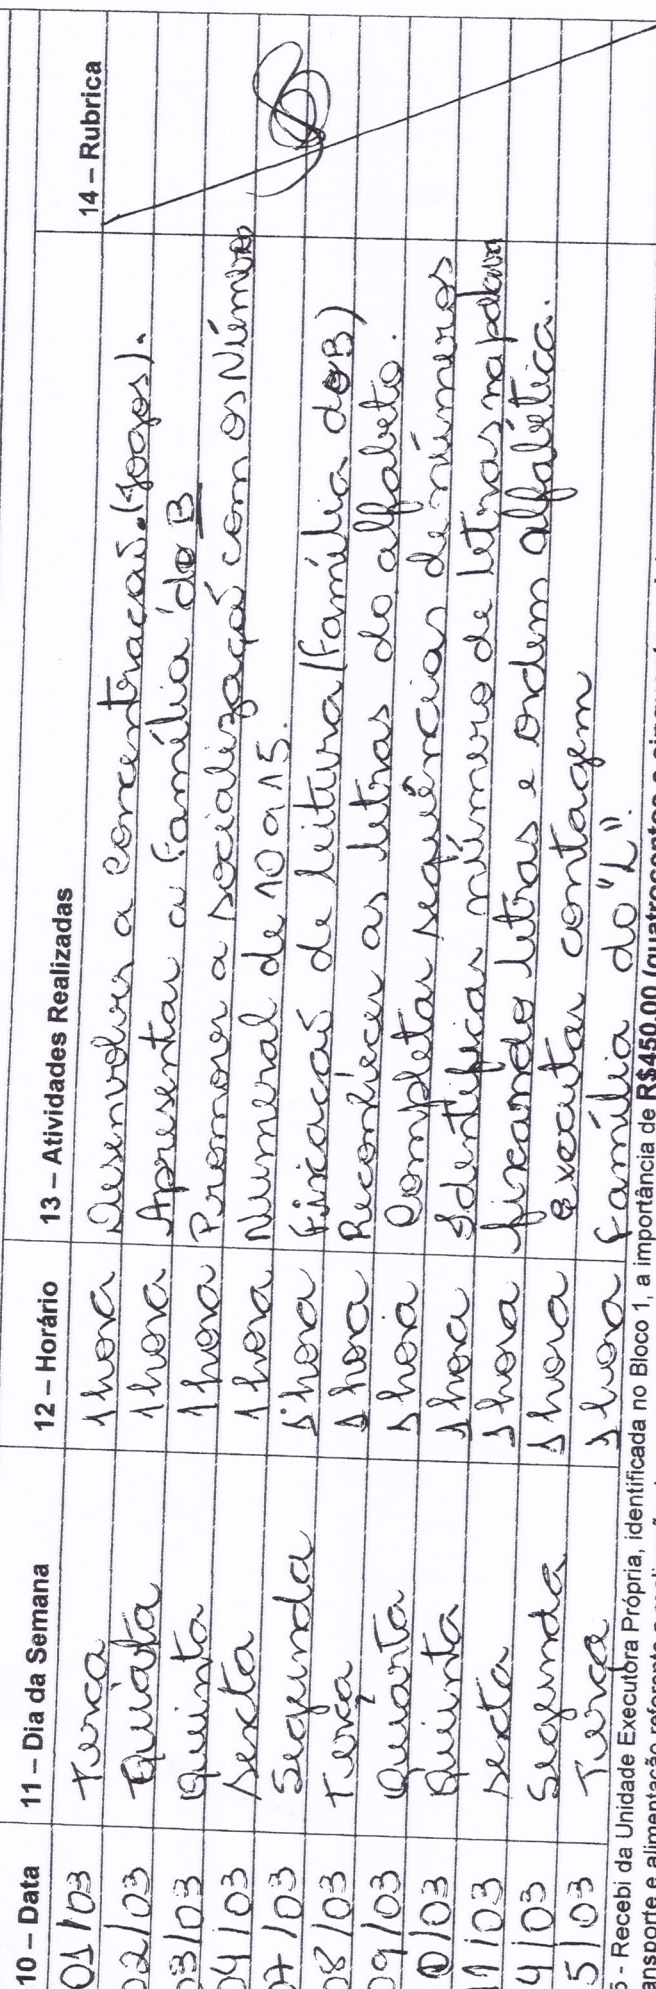 10 – Data 11 – Dia da Semana 12 – Horário 13 – Atividades Realizadas 14 – Rubrica
01/03 Terça 1 hora Desenvolver a concentração. (jogos).
02/03 Quarta 1 hora Apresentar a Família do B
03/03 Quinta 1 hora Promover a socialização com os Números
04/03 Sexta 1 hora Numeral de 10 a 15.
07/03 Segunda 1 hora Fixação de leitura (família do B)
08/03 Terça 1 hora Reconhecer as letras do alfabeto.
09/03 Quarta 1 hora Completar sequências de números
0/03 Quinta 1 hora Identificar número de letras na palavra
11/03 Sexta 1 hora fixando letras e ordem alfabética.
4/03 Segunda 1 hora Executar contagem
5/03 Terça 1 hora família do "L".
5 - Recebi da Unidade Executora Própria, identificada no Bloco 1, a importância de R$450,00 (quatrocentos e
ansporte e alimentação referente a